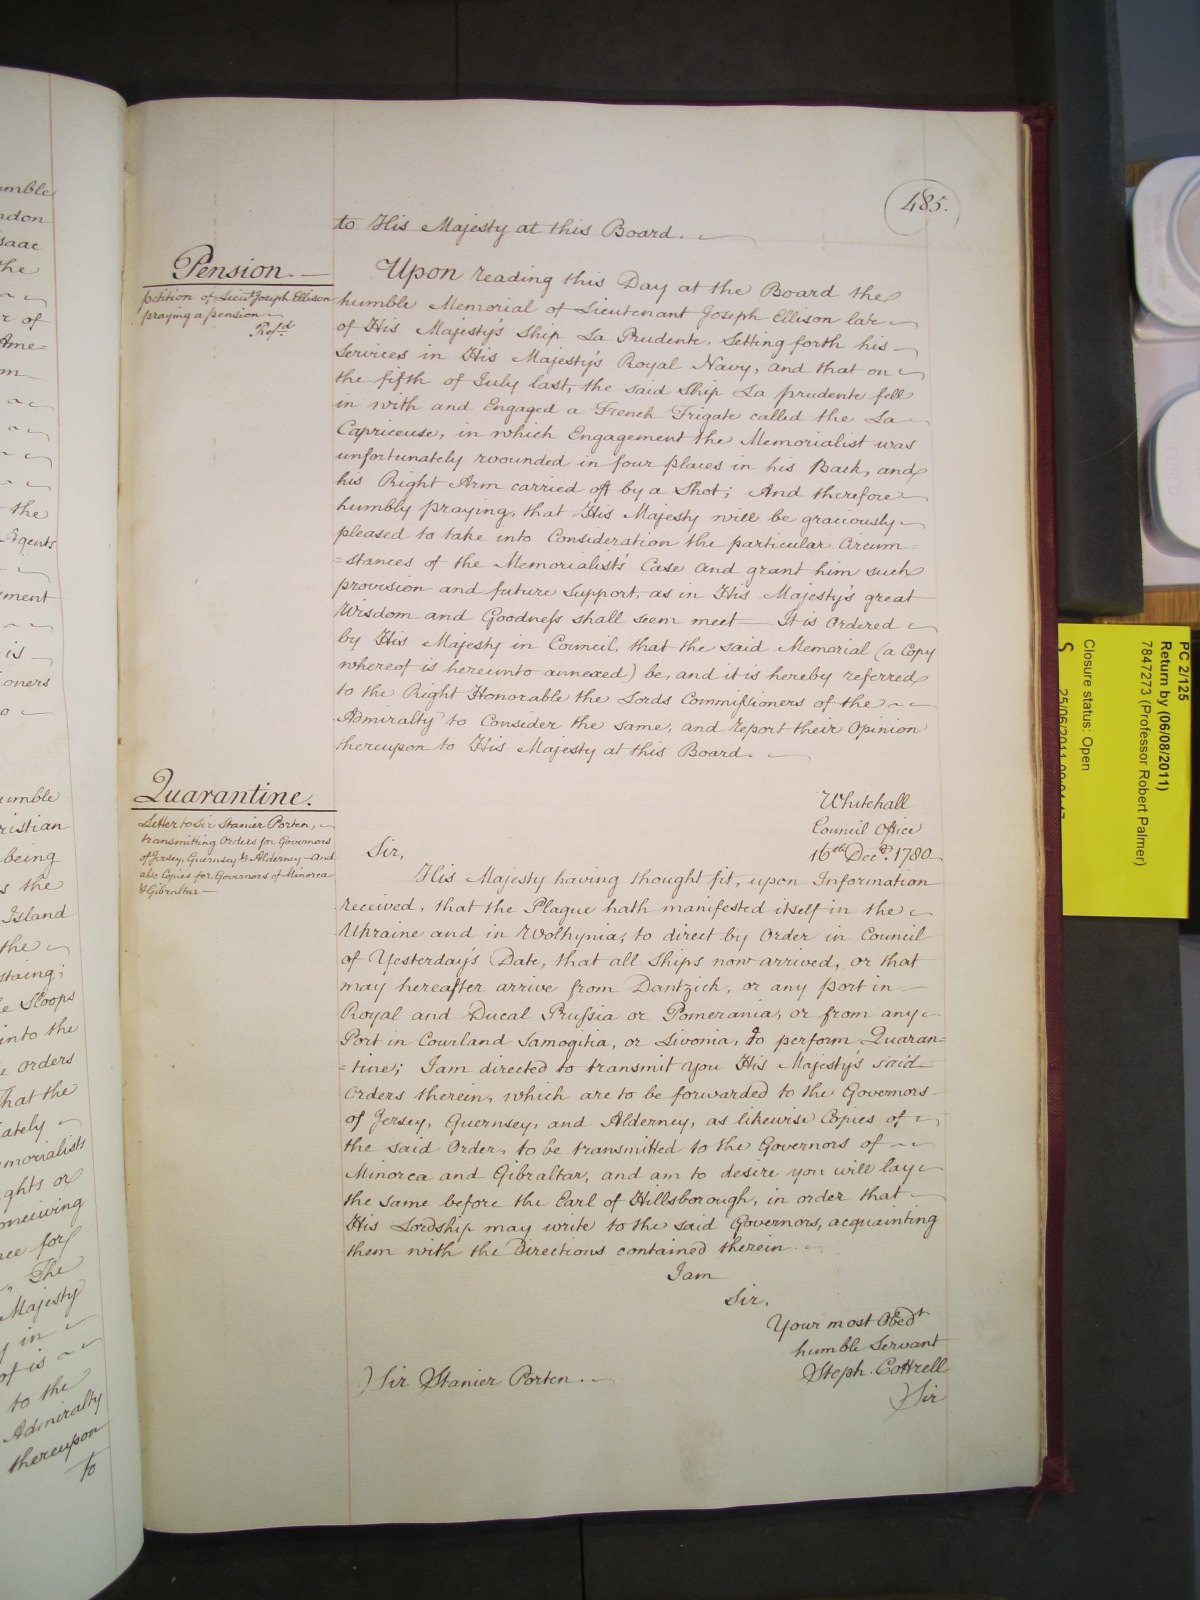 485.
to His Majesty at this Board.
Pension.
petition of Lieut. Joseph Ellison
praying a pension
Refd.
Upon reading this Day at the Board the
humble Memorial of Lieutenant Joseph Ellison late
of His Majesty's Ship La Prudente. Setting forth his
Services in His Majesty's Royal Navy, and that on
the fifth of July last, the said Ship La prudente fell
in with and Engaged a French Frigate called the La
Capriceuse, in which Engagement the Memorialist was
unfortunately wounded in four places in his Back, and
his Right Arm carried off by a Shot; And therefore
humbly praying, that His Majesty will be graciously
pleased to take into Consideration the particular Circum=
=stances of the Memorialist's Case and grant him such
provision and future Support, as in His Majesty's great
Wisdom and Goodness shall seem meet — It is Ordered
by His Majesty in Council, that the said Memorial (a Copy
whereof is hereunto annexed) be, and it is hereby referred
to the Right Honorable the Lords Commissioners of the
Admiralty to Consider the same, and report their Opinion
thereupon to His Majesty at this Board.
Quarantine.
Letter to Sir Stanier Porten,
transmitting Orders for Governors
of Jersey, Guernsey & Alderney — and
also Copies for Governors of Minorca
& Gibraltar —
Whitehall
Council Office
16th Decr. 1780
Sir,
His Majesty having thought fit, upon Information
received, that the Plague hath manifested itself in the
Ukraine and in Wolhynia, to direct by Order in Council
of Yesterday's Date, that all Ships now arrived, or that
may hereafter arrive from Dantzick, or any port in
Royal and Ducal Prussia or Pomerania, or from any
Port in Courland Samogitia, or Livonia, do perform Quaran=
=tine; I am directed to transmit you His Majesty's said
Orders therein, which are to be forwarded to the Governors
of Jersey, Guernsey, and Alderney, as likewise Copies of
the said Order, to be transmitted to the Governors of
Minorca and Gibraltar, and am to desire you will lay
the same before the Earl of Hillsborough, in order that
His Lordship may write to the said Governors, acquainting
them with the Directions contained therein.
I am
Sir,
Your most Obedt
humble Servant
Steph. Cottrell
Sir Stanier Porten.
Sir
umble
ndon
saac
the
r of
Ame=
the
Agents
ment
is
oners
umble
ristian
being
s the
Island
the
staing;
e Sloops
into the
e orders
That the
ately
morialists
ghts or
onceiving
nce for
The
Majesty
y in
of is
to the
Admiralty
thereupon
to
PC 2/125
Return by (06/08/2011)
7847273 (Professor Robert Palmer)
Closure status: Open
S